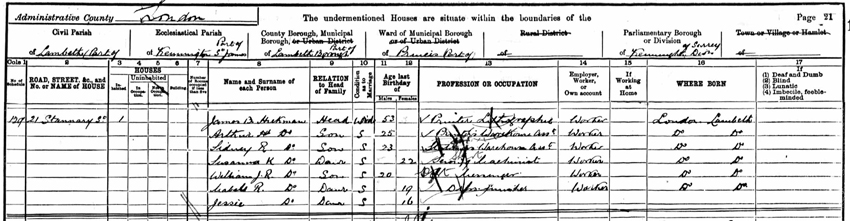 Administrative County London The undermentioned Houses are situate within the boundaries of the Page 21
Civil Parish Ecclesiastical Parish County Borough, Municipal Borough, or Urban District Ward of Municipal Borough or of Urban District Rural District Parliamentary Borough or Division Town or Village or Hamlet
of Lambeth (Part of) of Kennington St James Part of of Lambeth Borough Part of of Princes Part of of of Kennington Div of Surrey of
Cols 1 2 3 4 5 6 7 8 9 10 11 12 13 14 15 16 17
No. of Schedule ROAD, STREET, &c., and No. or NAME of HOUSE HOUSES Inhabited Uninhabited In Occupation Not in Occupation Building Name and Surname of each Person RELATION to Head of Family Condition as to Marriage Age last Birthday of Males Females PROFESSION OR OCCUPATION Employer, Worker, or Own account If Working at Home WHERE BORN If (1) Deaf and Dumb (2) Blind (3) Lunatic (4) Imbecile, feeble-minded
129 21 Stannary St 1 James B. Hickman Head Wid 53 Printer Worker London Lambeth
Arthur H Do Son S 25 Printers Warehouse Worker Do Do
Sidney R. Do Son S 23 Warehouse Worker Do Do
Susanna K Do Daur S 22 Machinist Worker Do Do
William J. R. Do Son S 20 Messenger Worker Do Do
Mabel R. Do Daur S 19 Worker Do Do
Jessie Do Daur S 16